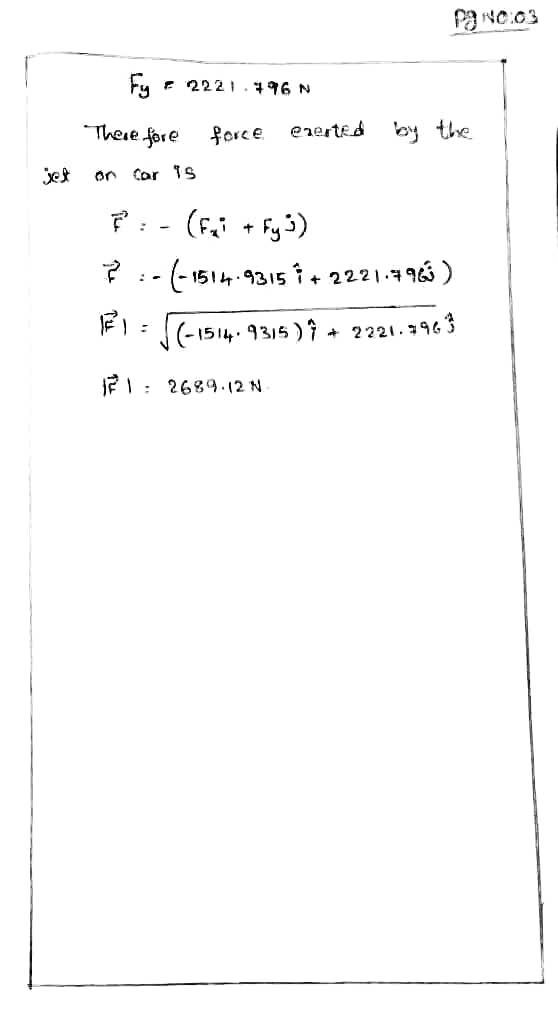 Pg NO:03
Fy = 2221.796 N
Therefore force exerted by the
jet on car is
F⃗ : - (Fxi + Fyj)
F⃗ : - (-1514.9315 î + 2221.796ĵ)
|F⃗| = √(-1514.9315) î + 2221.796 ĵ
|F⃗| : 2689.12 N.